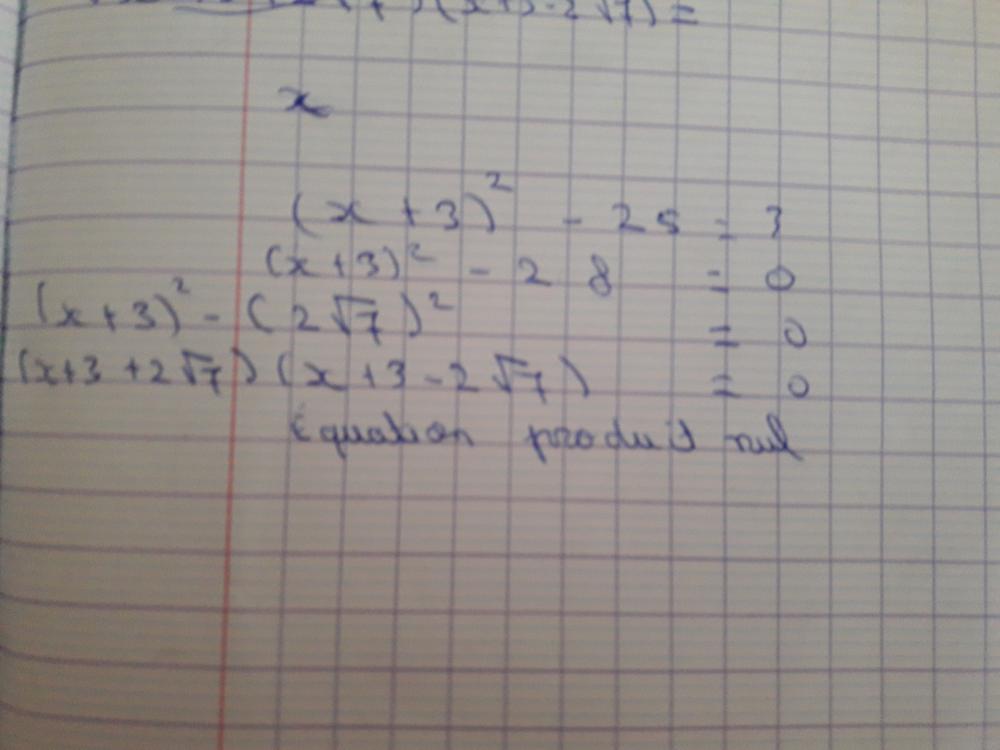 (x+3-2√7) =
x
(x + 3)² - 25 = 3
(x+3)² - 28 = 0
(x+3)² - (2√7)² = 0
(x+3+2√7)(x+3-2√7) = 0
Equation produit nul